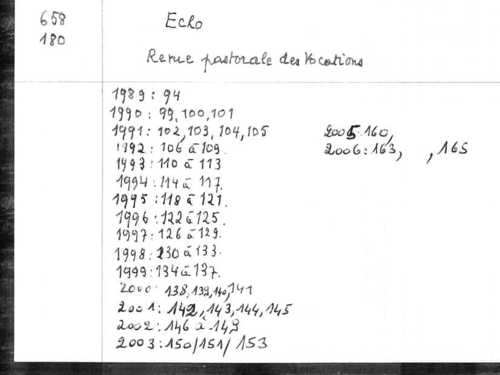 658
180
Echo
Revue pastorale des Vocations
1989 : 94
1990 : 99, 100, 101
1991 : 102, 103, 104, 105
1992 : 106 à 109.
1993 : 110 à 113
1994 : 114 à 117.
1995 : 118 à 121.
1996 : 122 à 125.
1997 : 126 à 129.
1998 : 130 à 133.
1999 : 134 à 137.
2000 : 138, 139, 140, 141
2001 : 142, 143, 144, 145
2002 : 146 à 149
2003 : 150/151/ 153
2005 160,
2006 : 163, , 165